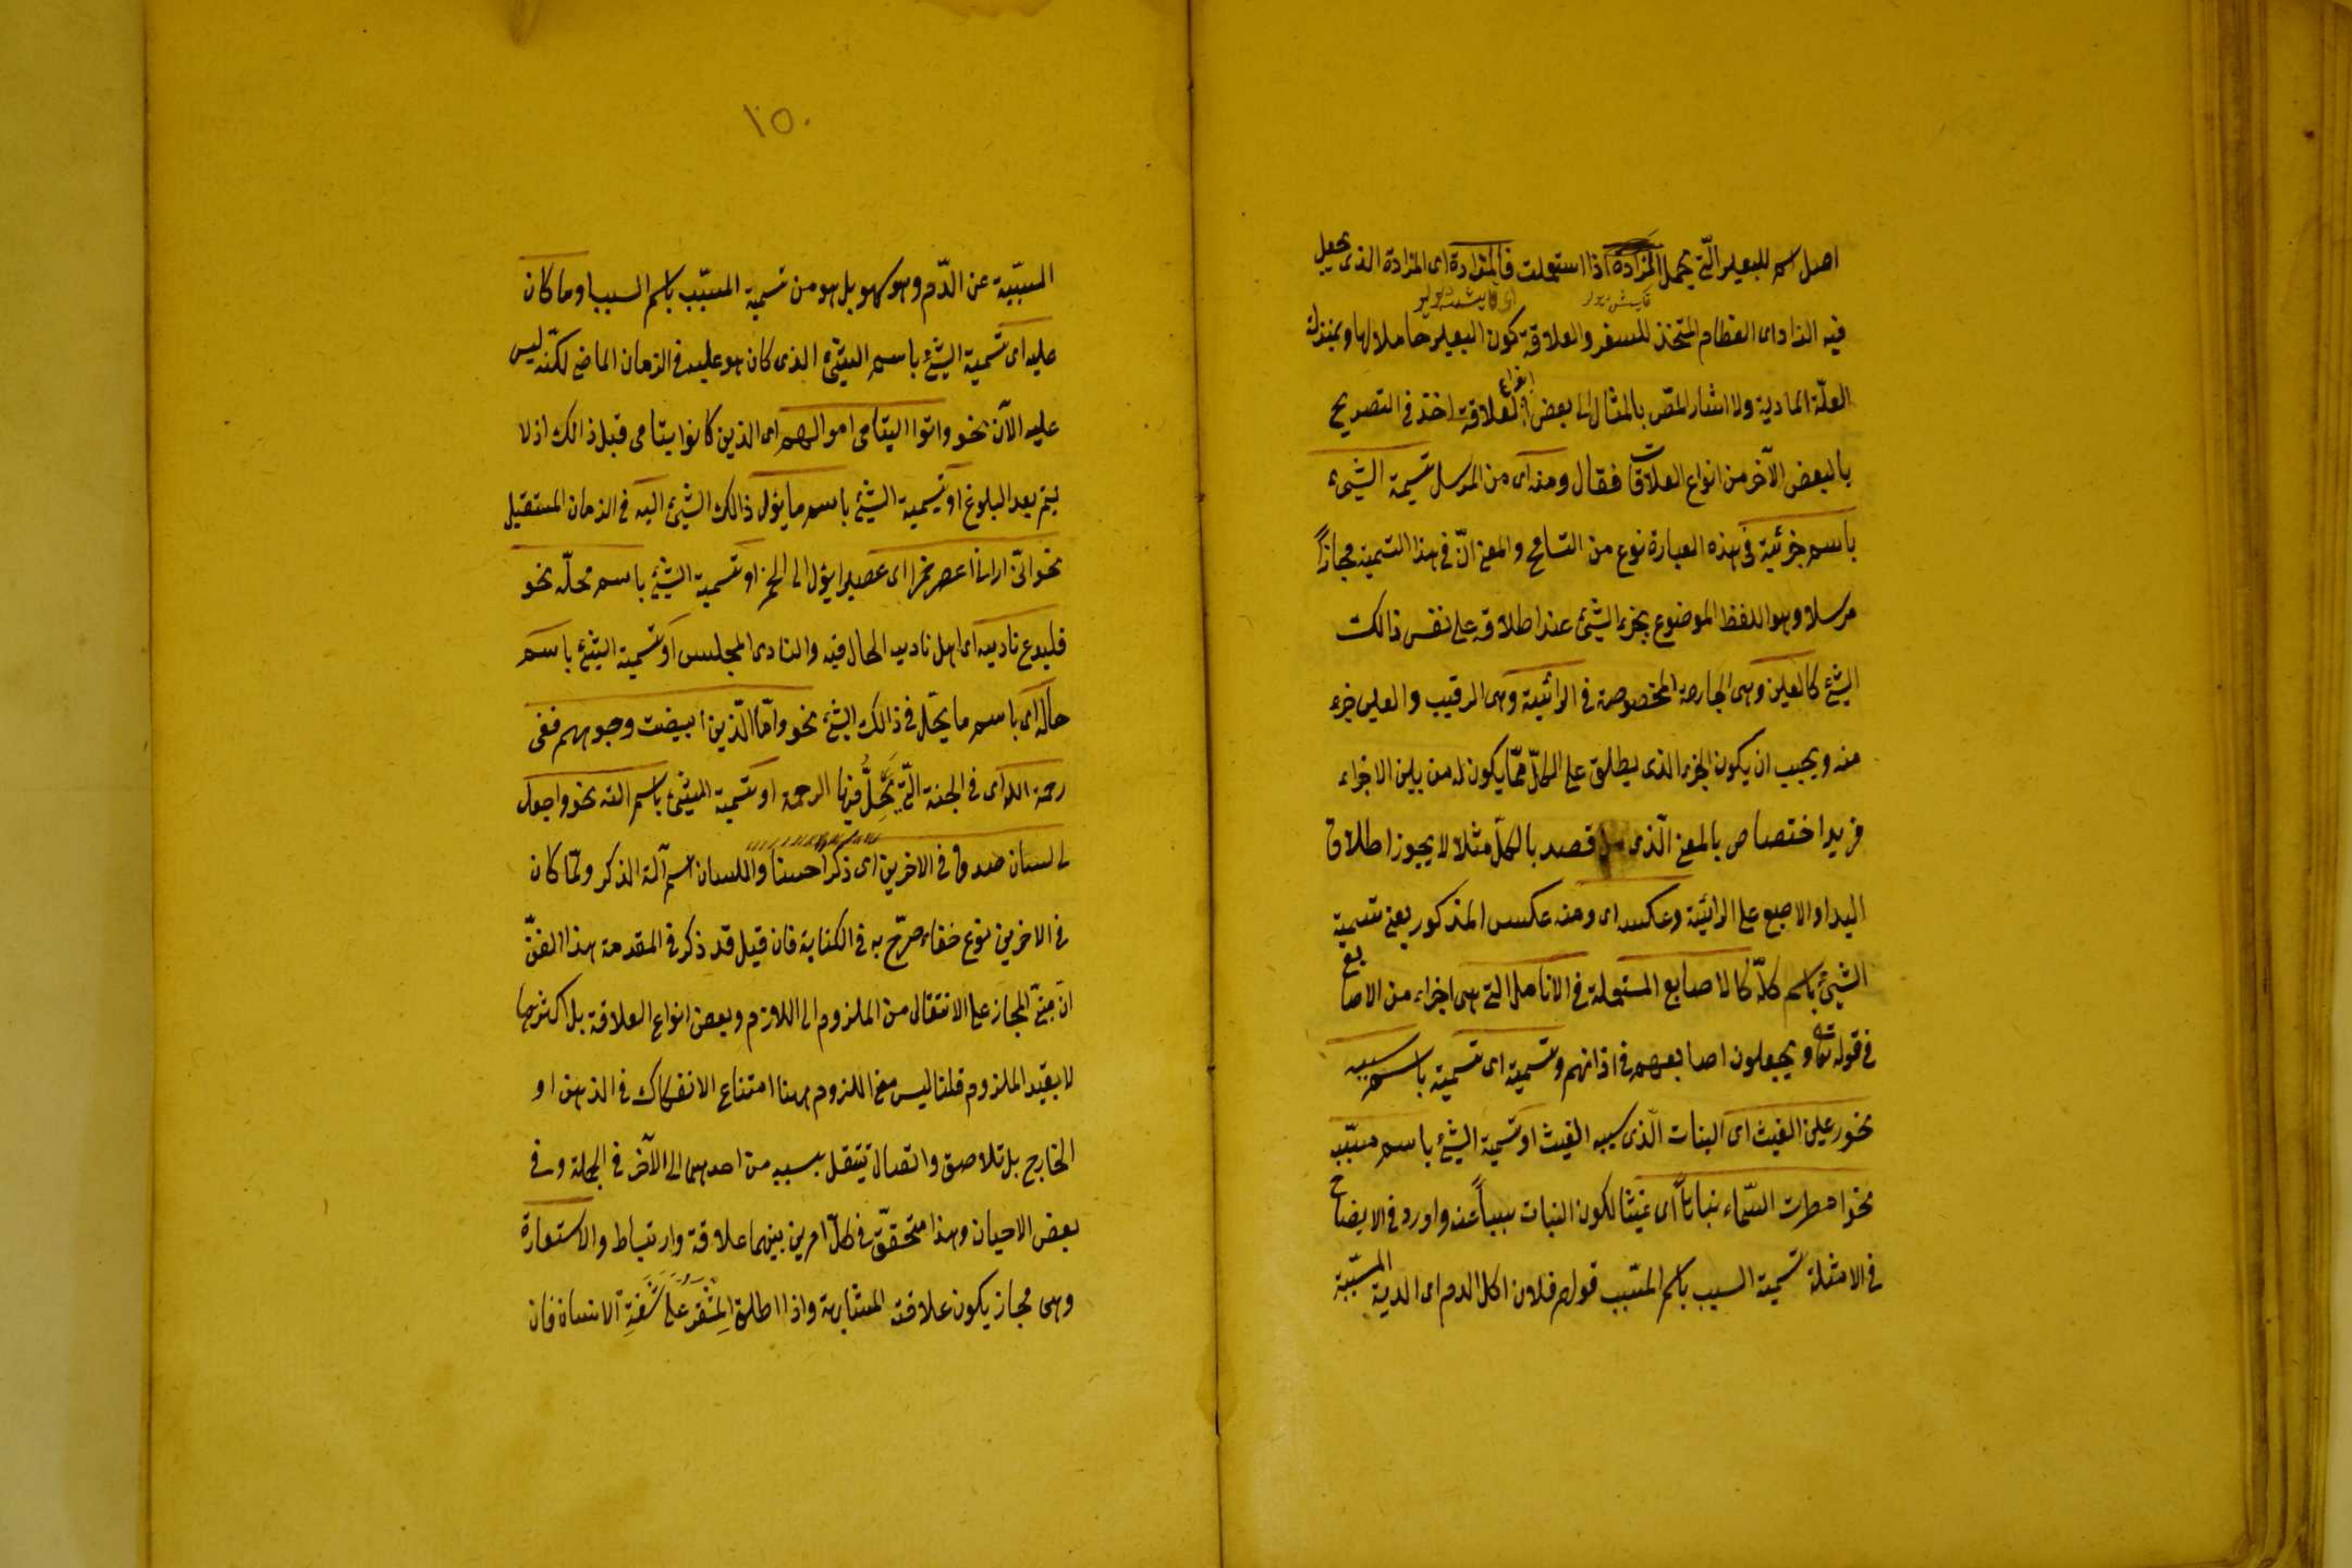 اصل اسم للبعير الّتى يحمل المزادة اذا استعملت فى المزادة اى المزادة الذى يجعل
فيه الزاد اى الطعام المتخذ للسفر والعلاقة كون البعير حاملا لها وبمنزلة
العلّة المادية ولا اشار المص بالمثال الى بعض انواع العلاقة اخذ فى التصريح
بالبعض الآخر من انواع العلاقات فقال ومنه اى من المرسل تسمية الشيئ
باسم جزئية فى هذه العبارة نوع من التسامح والمعنى انّ فى هذا التسمية مجازاً
مرسلا وهو اللفظ الموضوع بجزء الشيئ عند اطلاقه على نفس ذالك
الشيئ كالعين وهى الجارحة المخصوصة فى الرائيّة وهى الرقيب والعين جزء
منه ويجب ان يكون الجزء الذى يطلق على الكلّ ممّا يكون له من بين الاجزاء
مزيد اختصاص بالمعنى الّذى قصد بالكلّ مثلا لا يجوز اطلاق
اليد او الاصبع على الرائيّة وعكسه اى ومنه عكس المذكور يعنى تسمية
الشيئ باسم كلّه كالاصابع المستعملة فى الانامل التى هى اجزاء من الاصابع
فى قوله تعالى ويجعلون اصابعهم فى اذانهم وتسمية اى تسمية باسم سببه
نحو رعين الغيث اى النبات الّذى سببه الغيث او تسمية الشيئ باسم مسبّبه
نحو امطرت السّماء نباتاً اى غيثا لكون النبات سبباً عنه واورد فى الايضاح
فى الامثلة تسمية السبب باسم المسبّب قولهم فلان اكل الدم اى الدية المسبّبة
١٥٠
المسبّبة عن الدّم وهو كهو بل هو من تسمية المسبّب باسم السبب او ما كان
عليه اى تسمية الشيئ باسم الشيئ الذى كان هو عليه فى الزمان الماضى لكنّه ليس
عليه الآن نحو واتوا اليتامى اموالهم اى الذين كانوا يتامى قبل ذالك اذ لا
يتم بعد البلوغ او تسمية الشيئ باسم ما يؤل ذالك الشيئ اليه فى الزمان المستقبل
نحو انّى ارانى اعصر خمرا اى عصيرا يؤل الى الخمر او تسمية الشيئ باسم محلّه نحو
فليدع ناديه اى اهل ناديه الحال فيه والنادى المجلس او تسمية الشيئ باسم
حاله اى باسم ما يحلّ فى ذالك الشيئ نحو وامّا الّذين ابيضت وجوههم ففى
رحمة الله اى فى الجنة الّتى تَحِلُّ فيها الرحمة او تسمية الشيئ باسم الته نحو واجعل
لى لسان صدق فى الاخرين اى ذكرا حسنا واللسان اسم آلة الذكر ولمّا كان
فى الاخرين نوع خفاء صرّح به فى الكتابة فان قيل قد ذكر فى المقدمة هذا الفنّ
انّ مبنىّ المجاز على الانتقال من الملزوم الى اللازم وبعض انواع العلاقة بل اكثرها
لا يفيد الملزوم قلنا ليس معنى اللزوم ههنا امتناع الانفكاك فى الذهن او
الخارج بل تلاصق واتصال تنتقل بسببه من احدهما الى الآخر فى الجملة وفى
بعض الاحيان وهذا متحقّق فى كلّ امرين بينهما علاقة وارتباط والاستعارة
وهى مجاز يكون علاقته المشابهة واذا اطلق المِشْفَر على شَفَةِ الانسان فان